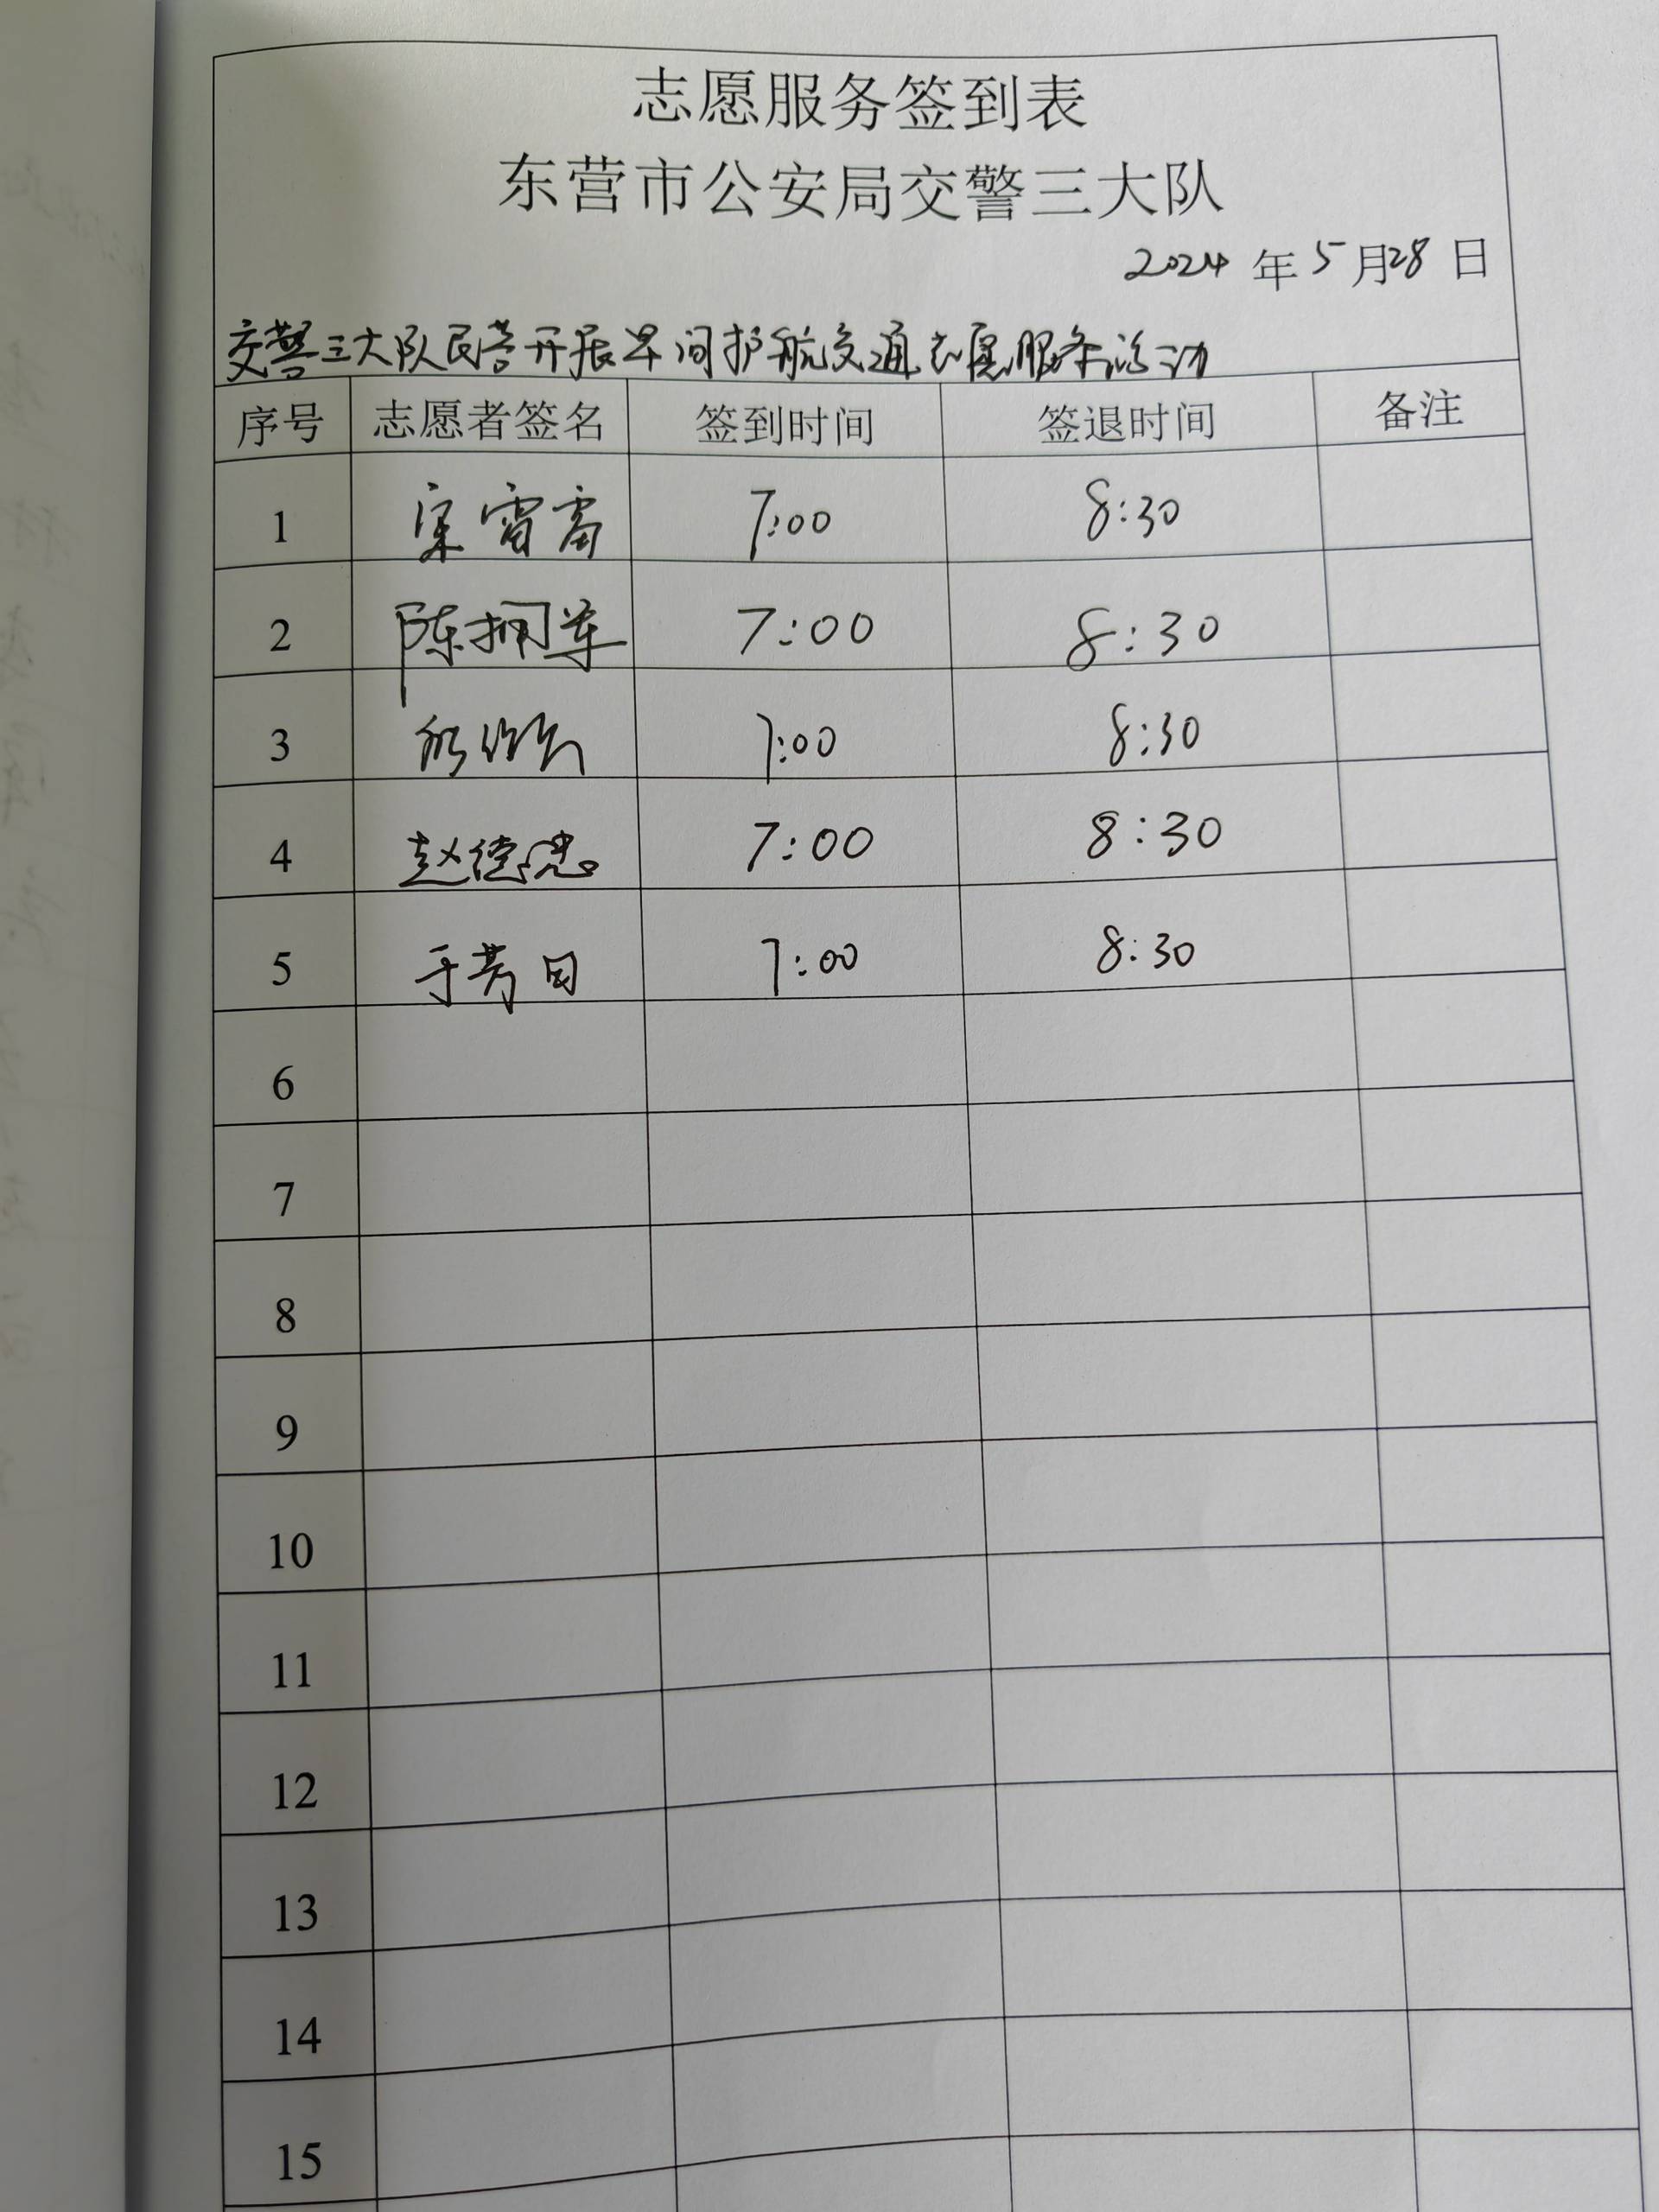 志愿服务签到表
东营市公安局交警三大队
2024 年 5 月 28 日
交警三大队民警开展早间护航交通志愿服务活动
序号 志愿者签名 签到时间 签退时间 备注
1 7:00 8:30
2 陈拥军 7:00 8:30
3 7:00 8:30
4 赵德忠 7:00 8:30
5 7:00 8:30
6
7
8
9
10
11
12
13
14
15